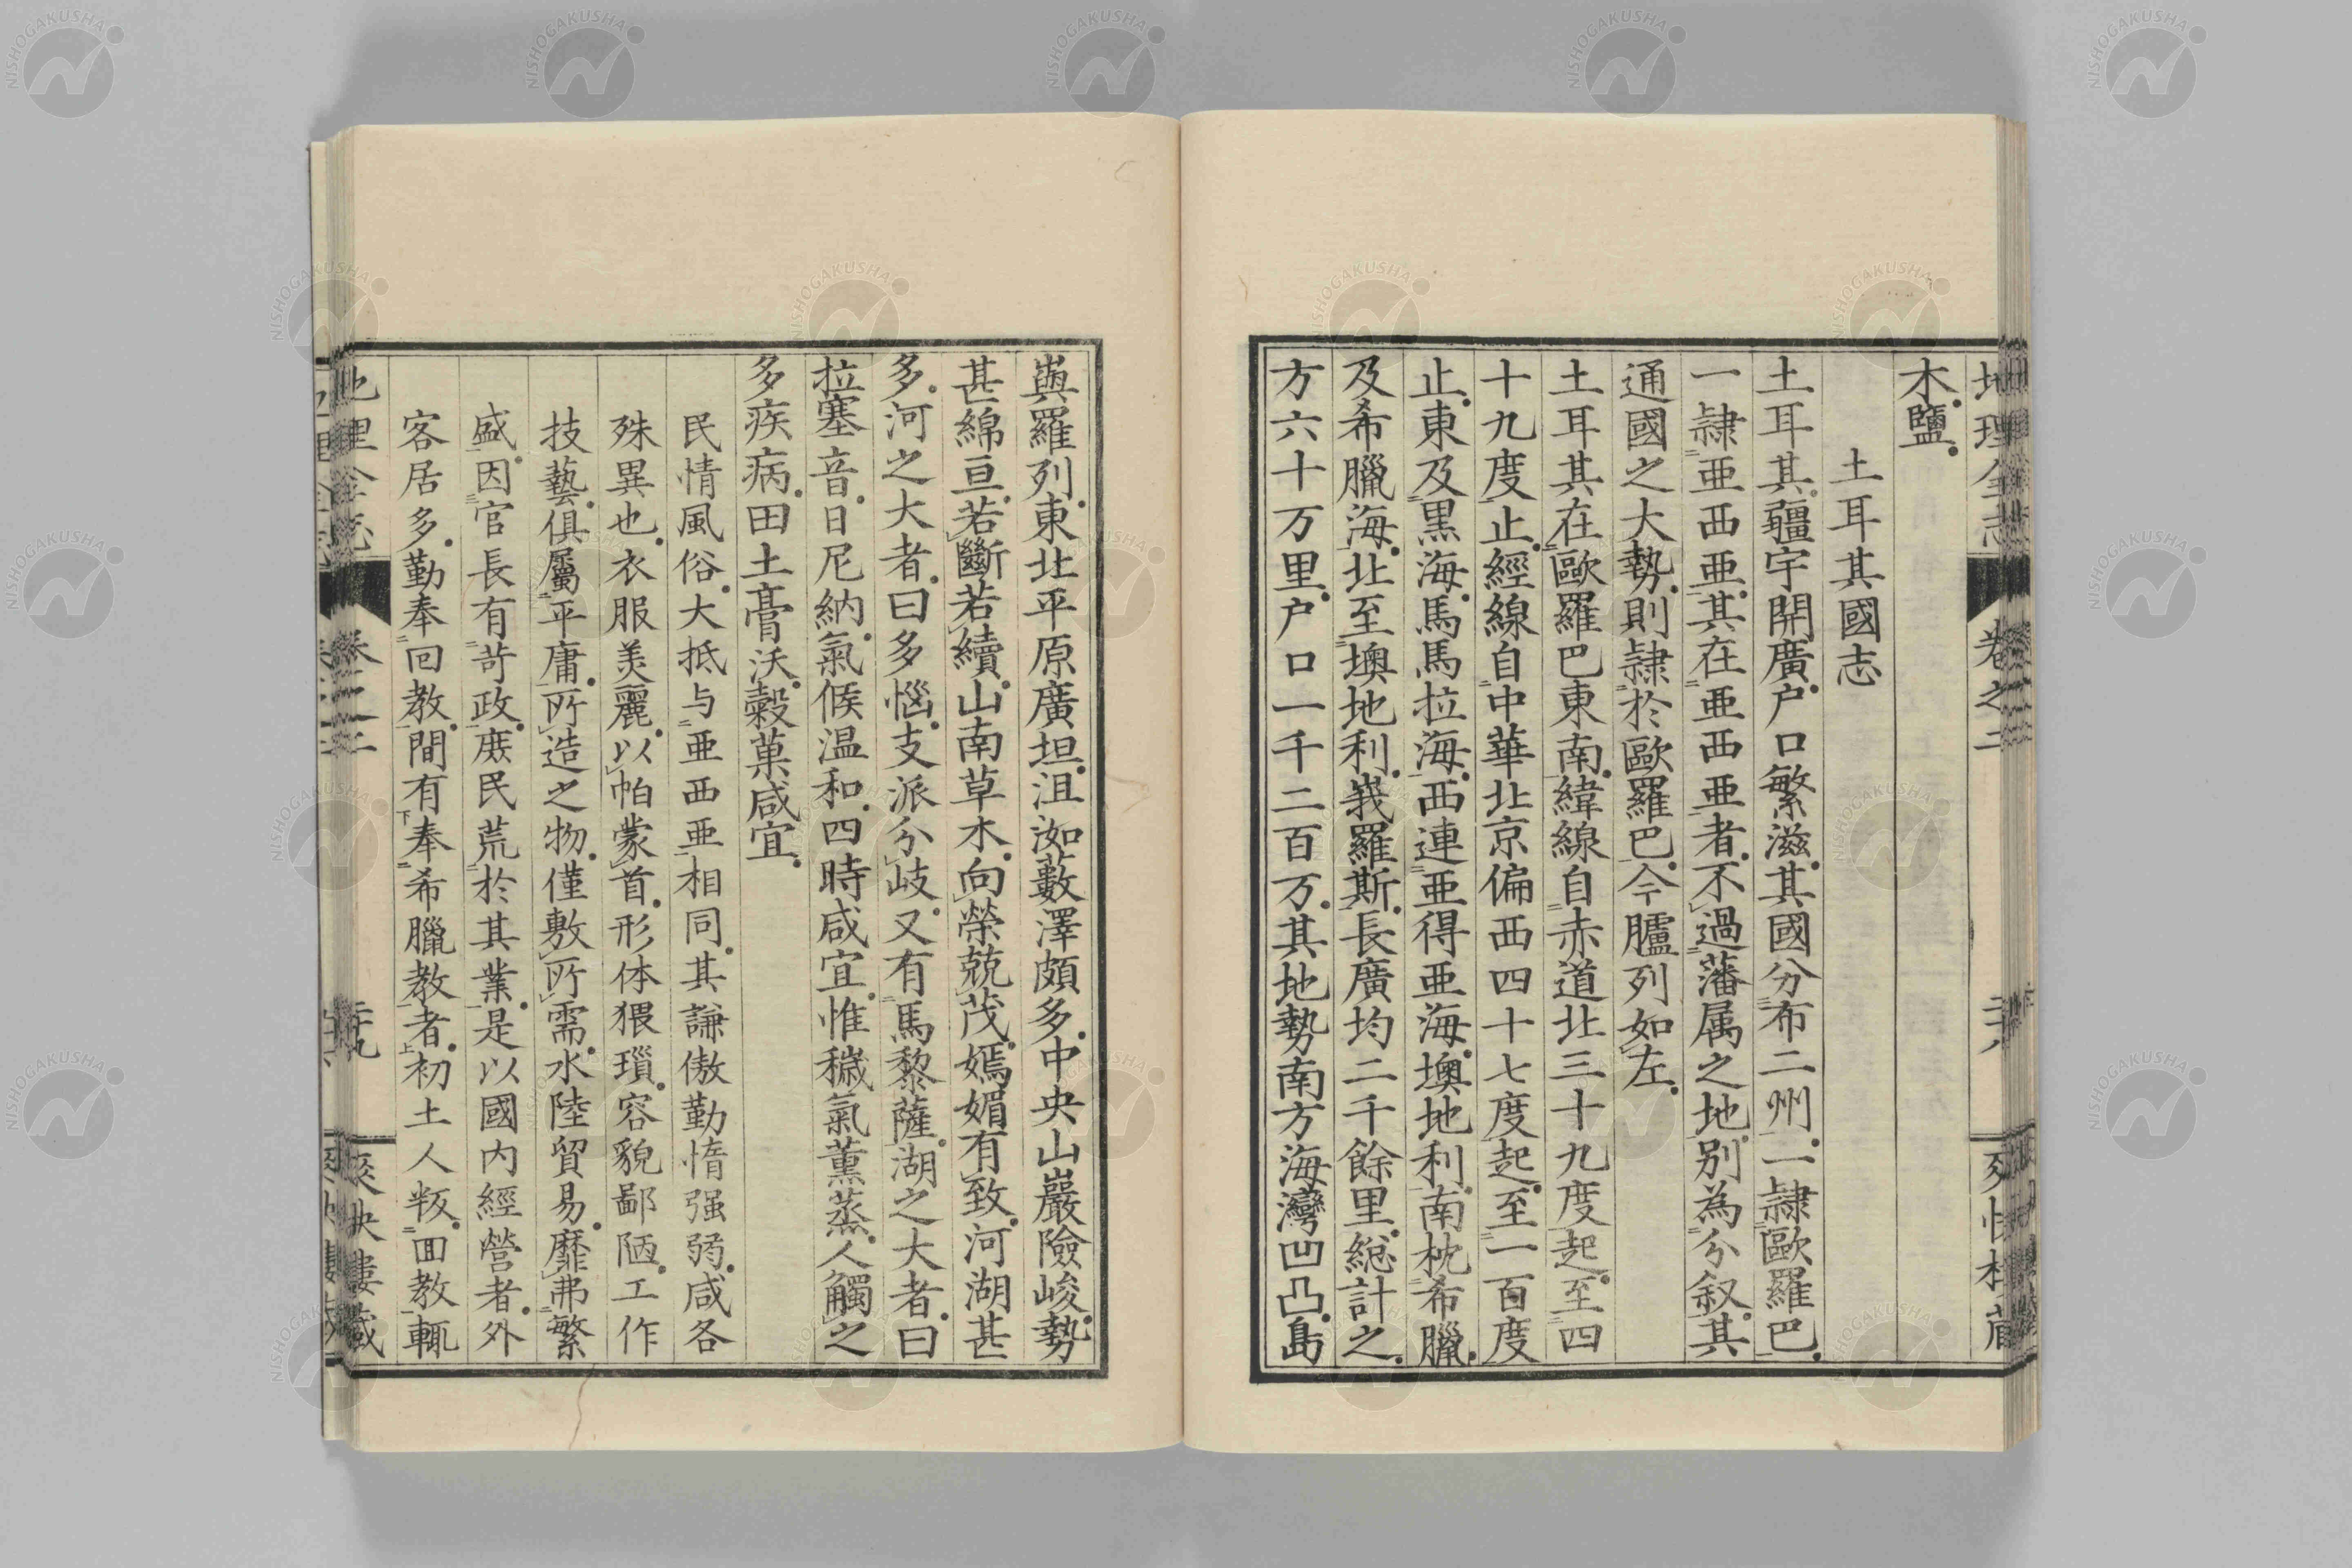 地理全志 卷之二
木鹽。
土耳其國志
土耳其。疆宇開廣。户口繁滋。其國分布二州。一隷歐羅巴。
一隷亜西亜。其在亜西亜者。不過藩属之地。別為分叙。其
通國之大勢。則隷於歐羅巴。今臚列如左。
土耳其在歐羅巴東南。緯線自赤道北三十九度起。至四
十九度止。經線自中華北京偏西四十七度起。至一百度
止。東及黒海。馬馬拉海。西連亜得亜海。墺地利。南枕希臘。
及希臘海。北至墺地利。峩羅斯。長廣均二千餘里。総計之。
方六十万里。户口一千二百万。其地勢南方海灣凹凸。島
嶼羅列。東北平原廣坦。沮洳藪澤頗多。中央山巖險峻。勢
甚綿亘。若斷若續。山南草木。向榮兢茂。嫣媚有致。河湖甚
多。河之大者。曰多惱。支派分岐。又有馬黎薩。湖之大者。曰
拉塞音。日尼納。氣候温和。四時咸宜。惟穢氣薫蒸。人觸之
多疾病。田土膏沃。穀菓咸宜。
民情風俗。大抵与亜西亜相同。其謙傲勤惰强弱。咸各
殊異也。衣服美麗。以帕蒙首。形体猥瑣。容貌鄙陋。工作
技藝。俱屬平庸。所造之物。僅敷所需。水陸貿易。靡弗繁
盛。因官長有苛政。庶民荒於其業。是以國内經營者。外
客居多。勤奉回教。間有奉希臘教者。初土人叛。回教輒